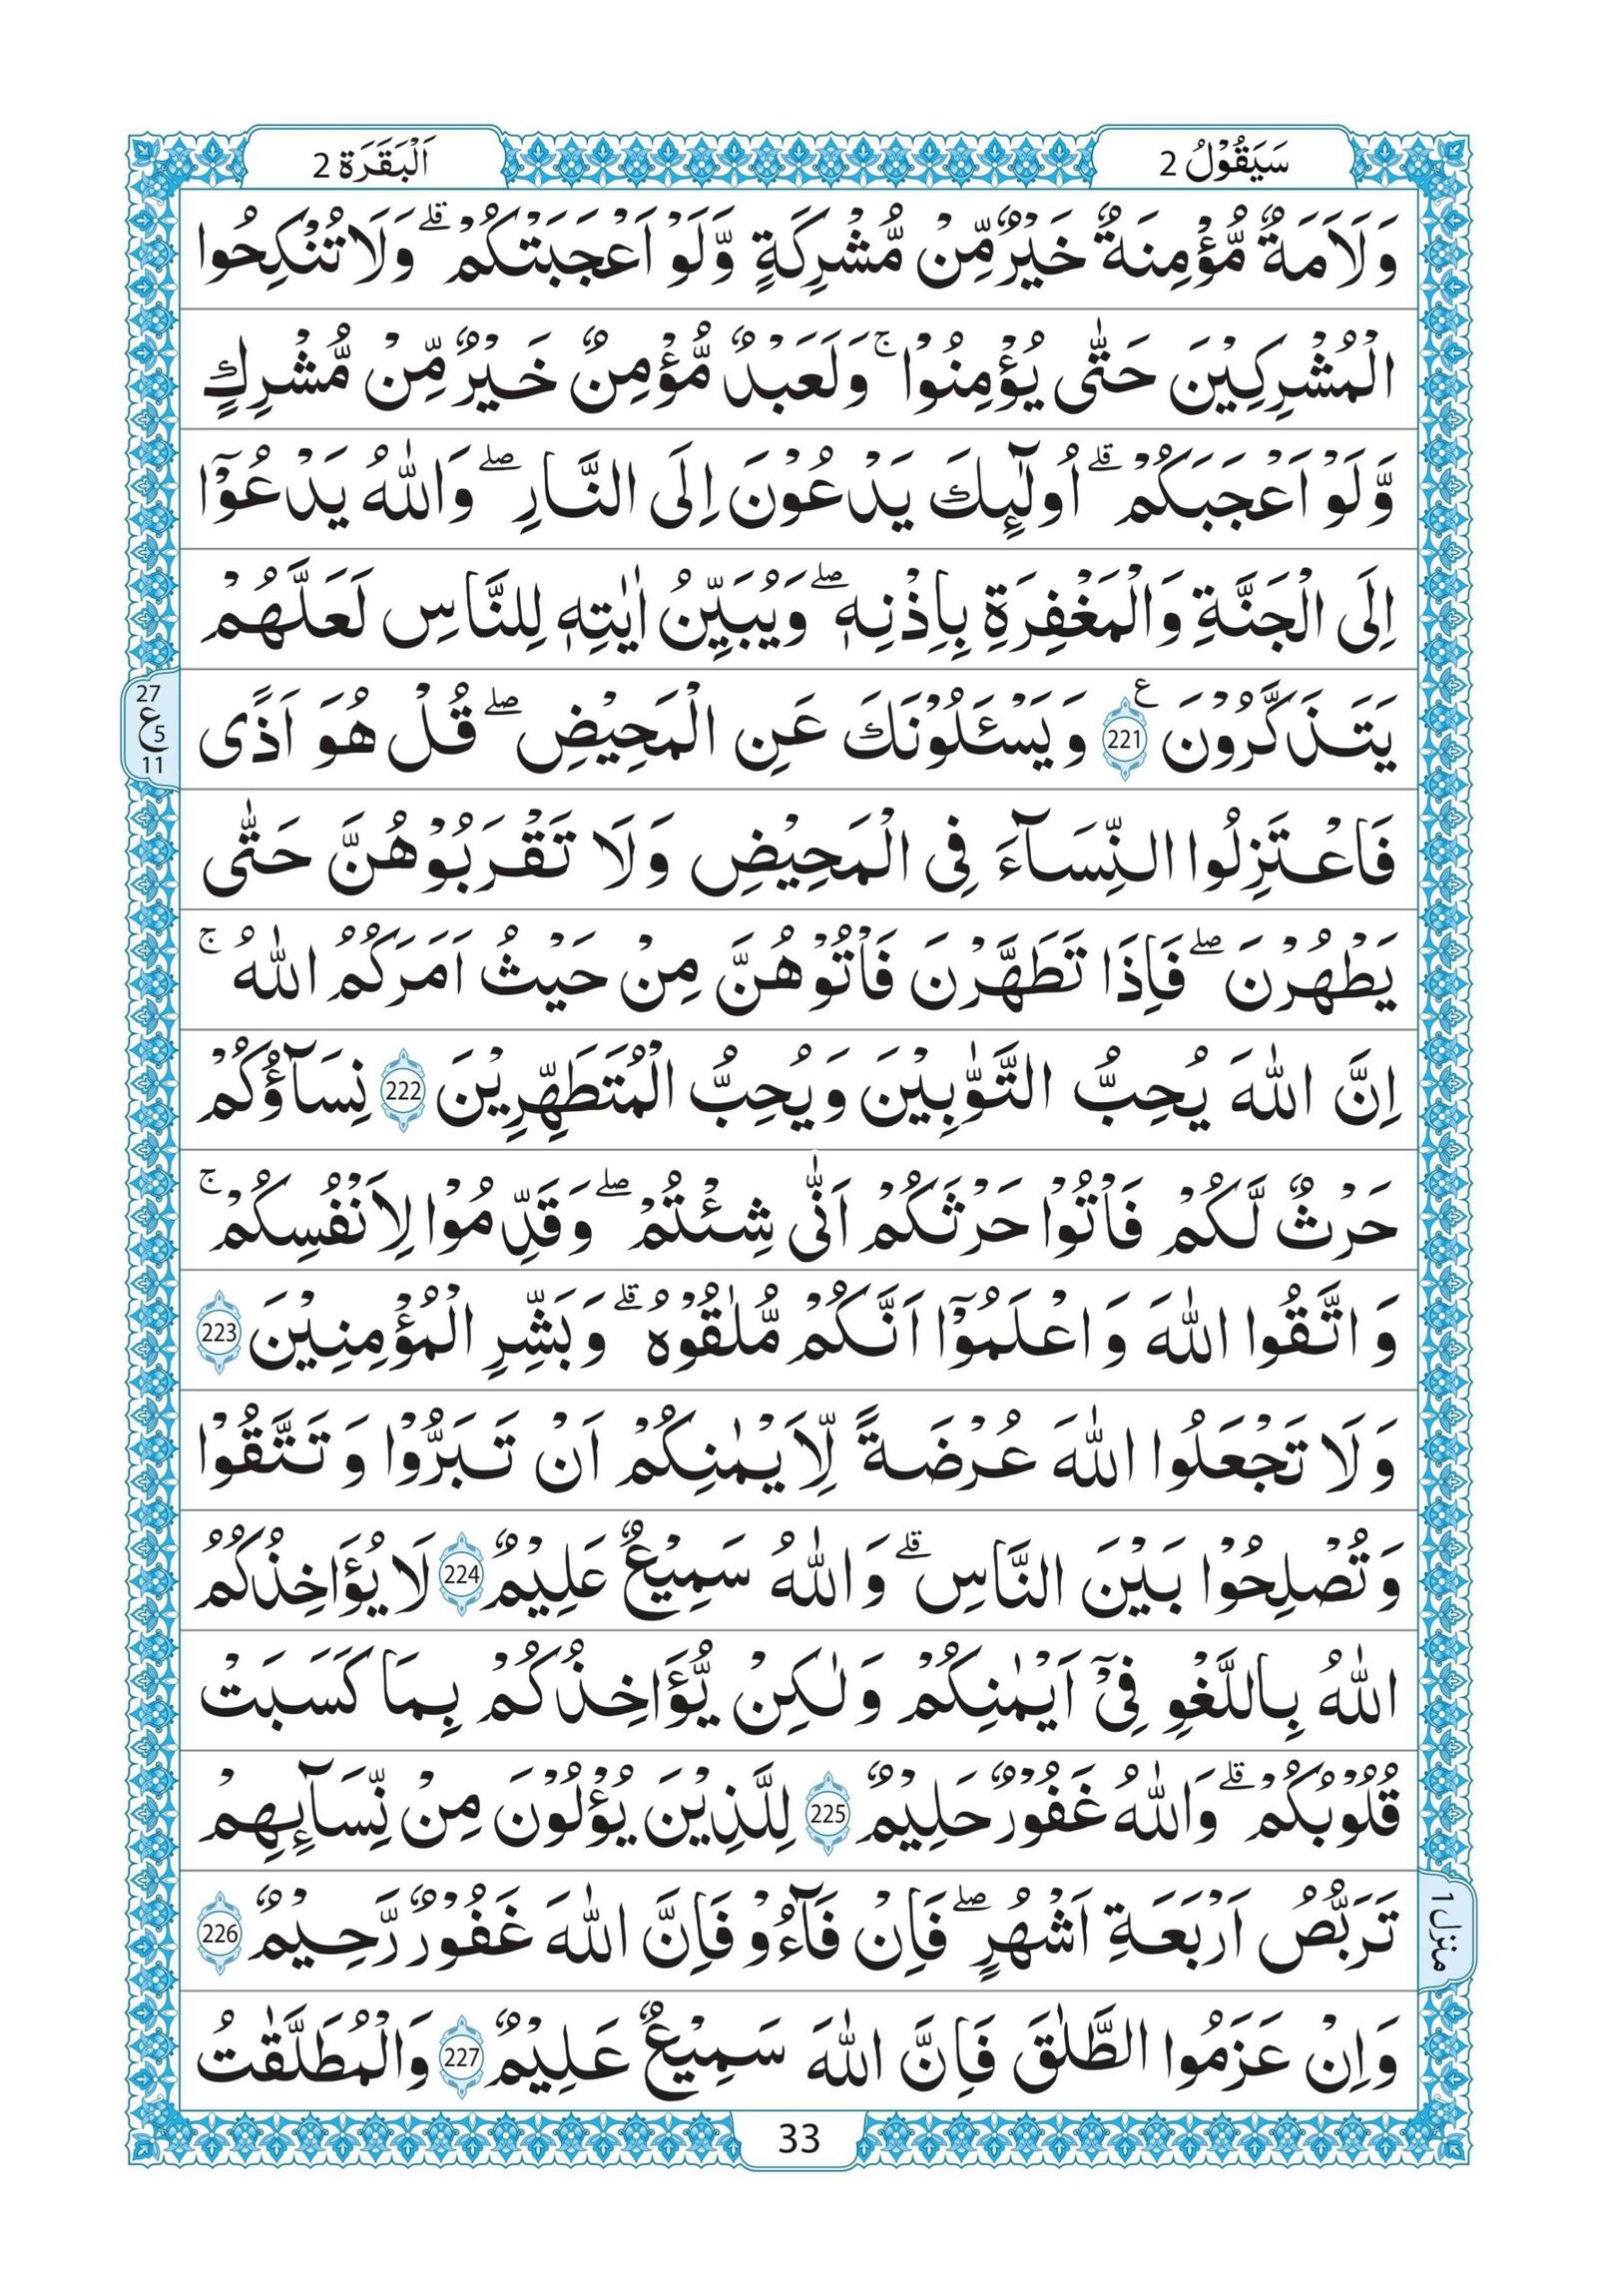 سَيَقُوْلُ 2
اَلْبَقَرَة 2
وَلَاَمَةٌ مُّؤْمِنَةٌ خَيْرٌ مِّنْ مُّشْرِكَةٍ وَّلَوْ اَعْجَبَتْكُمْ ۗ وَلَا تُنْكِحُوا
الْمُشْرِكِيْنَ حَتّٰى يُؤْمِنُوْا ۚ وَلَعَبْدٌ مُّؤْمِنٌ خَيْرٌ مِّنْ مُّشْرِكٍ
وَّلَوْ اَعْجَبَكُمْ ۗ اُولٰٓئِكَ يَدْعُوْنَ اِلَى النَّارِ ۖ وَاللّٰهُ يَدْعُوْٓا
اِلَى الْجَنَّةِ وَالْمَغْفِرَةِ بِاِذْنِهٖ ۖ وَيُبَيِّنُ اٰيٰتِهٖ لِلنَّاسِ لَعَلَّهُمْ
27
ع 5
11
يَتَذَكَّرُوْنَ ع 221 وَيَسْـَٔلُوْنَكَ عَنِ الْمَحِيْضِ ۖ قُلْ هُوَ اَذًى
فَاعْتَزِلُوا النِّسَآءَ فِى الْمَحِيْضِ وَلَا تَقْرَبُوْهُنَّ حَتّٰى
يَطْهُرْنَ ۖ فَاِذَا تَطَهَّرْنَ فَاْتُوْهُنَّ مِنْ حَيْثُ اَمَرَكُمُ اللّٰهُ ۚ
اِنَّ اللّٰهَ يُحِبُّ التَّوّٰبِيْنَ وَيُحِبُّ الْمُتَطَهِّرِيْنَ 222 نِسَآؤُكُمْ
حَرْثٌ لَّكُمْ فَاْتُوْا حَرْثَكُمْ اَنّٰى شِئْتُمْ ۖ وَقَدِّمُوْا لِاَنْفُسِكُمْ ۚ
وَاتَّقُوا اللّٰهَ وَاعْلَمُوْٓا اَنَّكُمْ مُّلٰقُوْهُ ۗ وَبَشِّرِ الْمُؤْمِنِيْنَ 223
وَلَا تَجْعَلُوا اللّٰهَ عُرْضَةً لِّاَيْمٰنِكُمْ اَنْ تَبَرُّوْا وَتَتَّقُوْا
وَتُصْلِحُوْا بَيْنَ النَّاسِ ۗ وَاللّٰهُ سَمِيْعٌ عَلِيْمٌ 224 لَا يُؤَاخِذُكُمُ
اللّٰهُ بِاللَّغْوِ فِىْٓ اَيْمٰنِكُمْ وَلٰكِنْ يُّؤَاخِذُكُمْ بِمَا كَسَبَتْ
قُلُوْبُكُمْ ۗ وَاللّٰهُ غَفُوْرٌ حَلِيْمٌ 225 لِلَّذِيْنَ يُؤْلُوْنَ مِنْ نِّسَآئِهِمْ
تَرَبُّصُ اَرْبَعَةِ اَشْهُرٍ ۖ فَاِنْ فَآءُوْ فَاِنَّ اللّٰهَ غَفُوْرٌ رَّحِيْمٌ 226
منزل 1
وَاِنْ عَزَمُوا الطَّلٰقَ فَاِنَّ اللّٰهَ سَمِيْعٌ عَلِيْمٌ 227 وَالْمُطَلَّقٰتُ
33